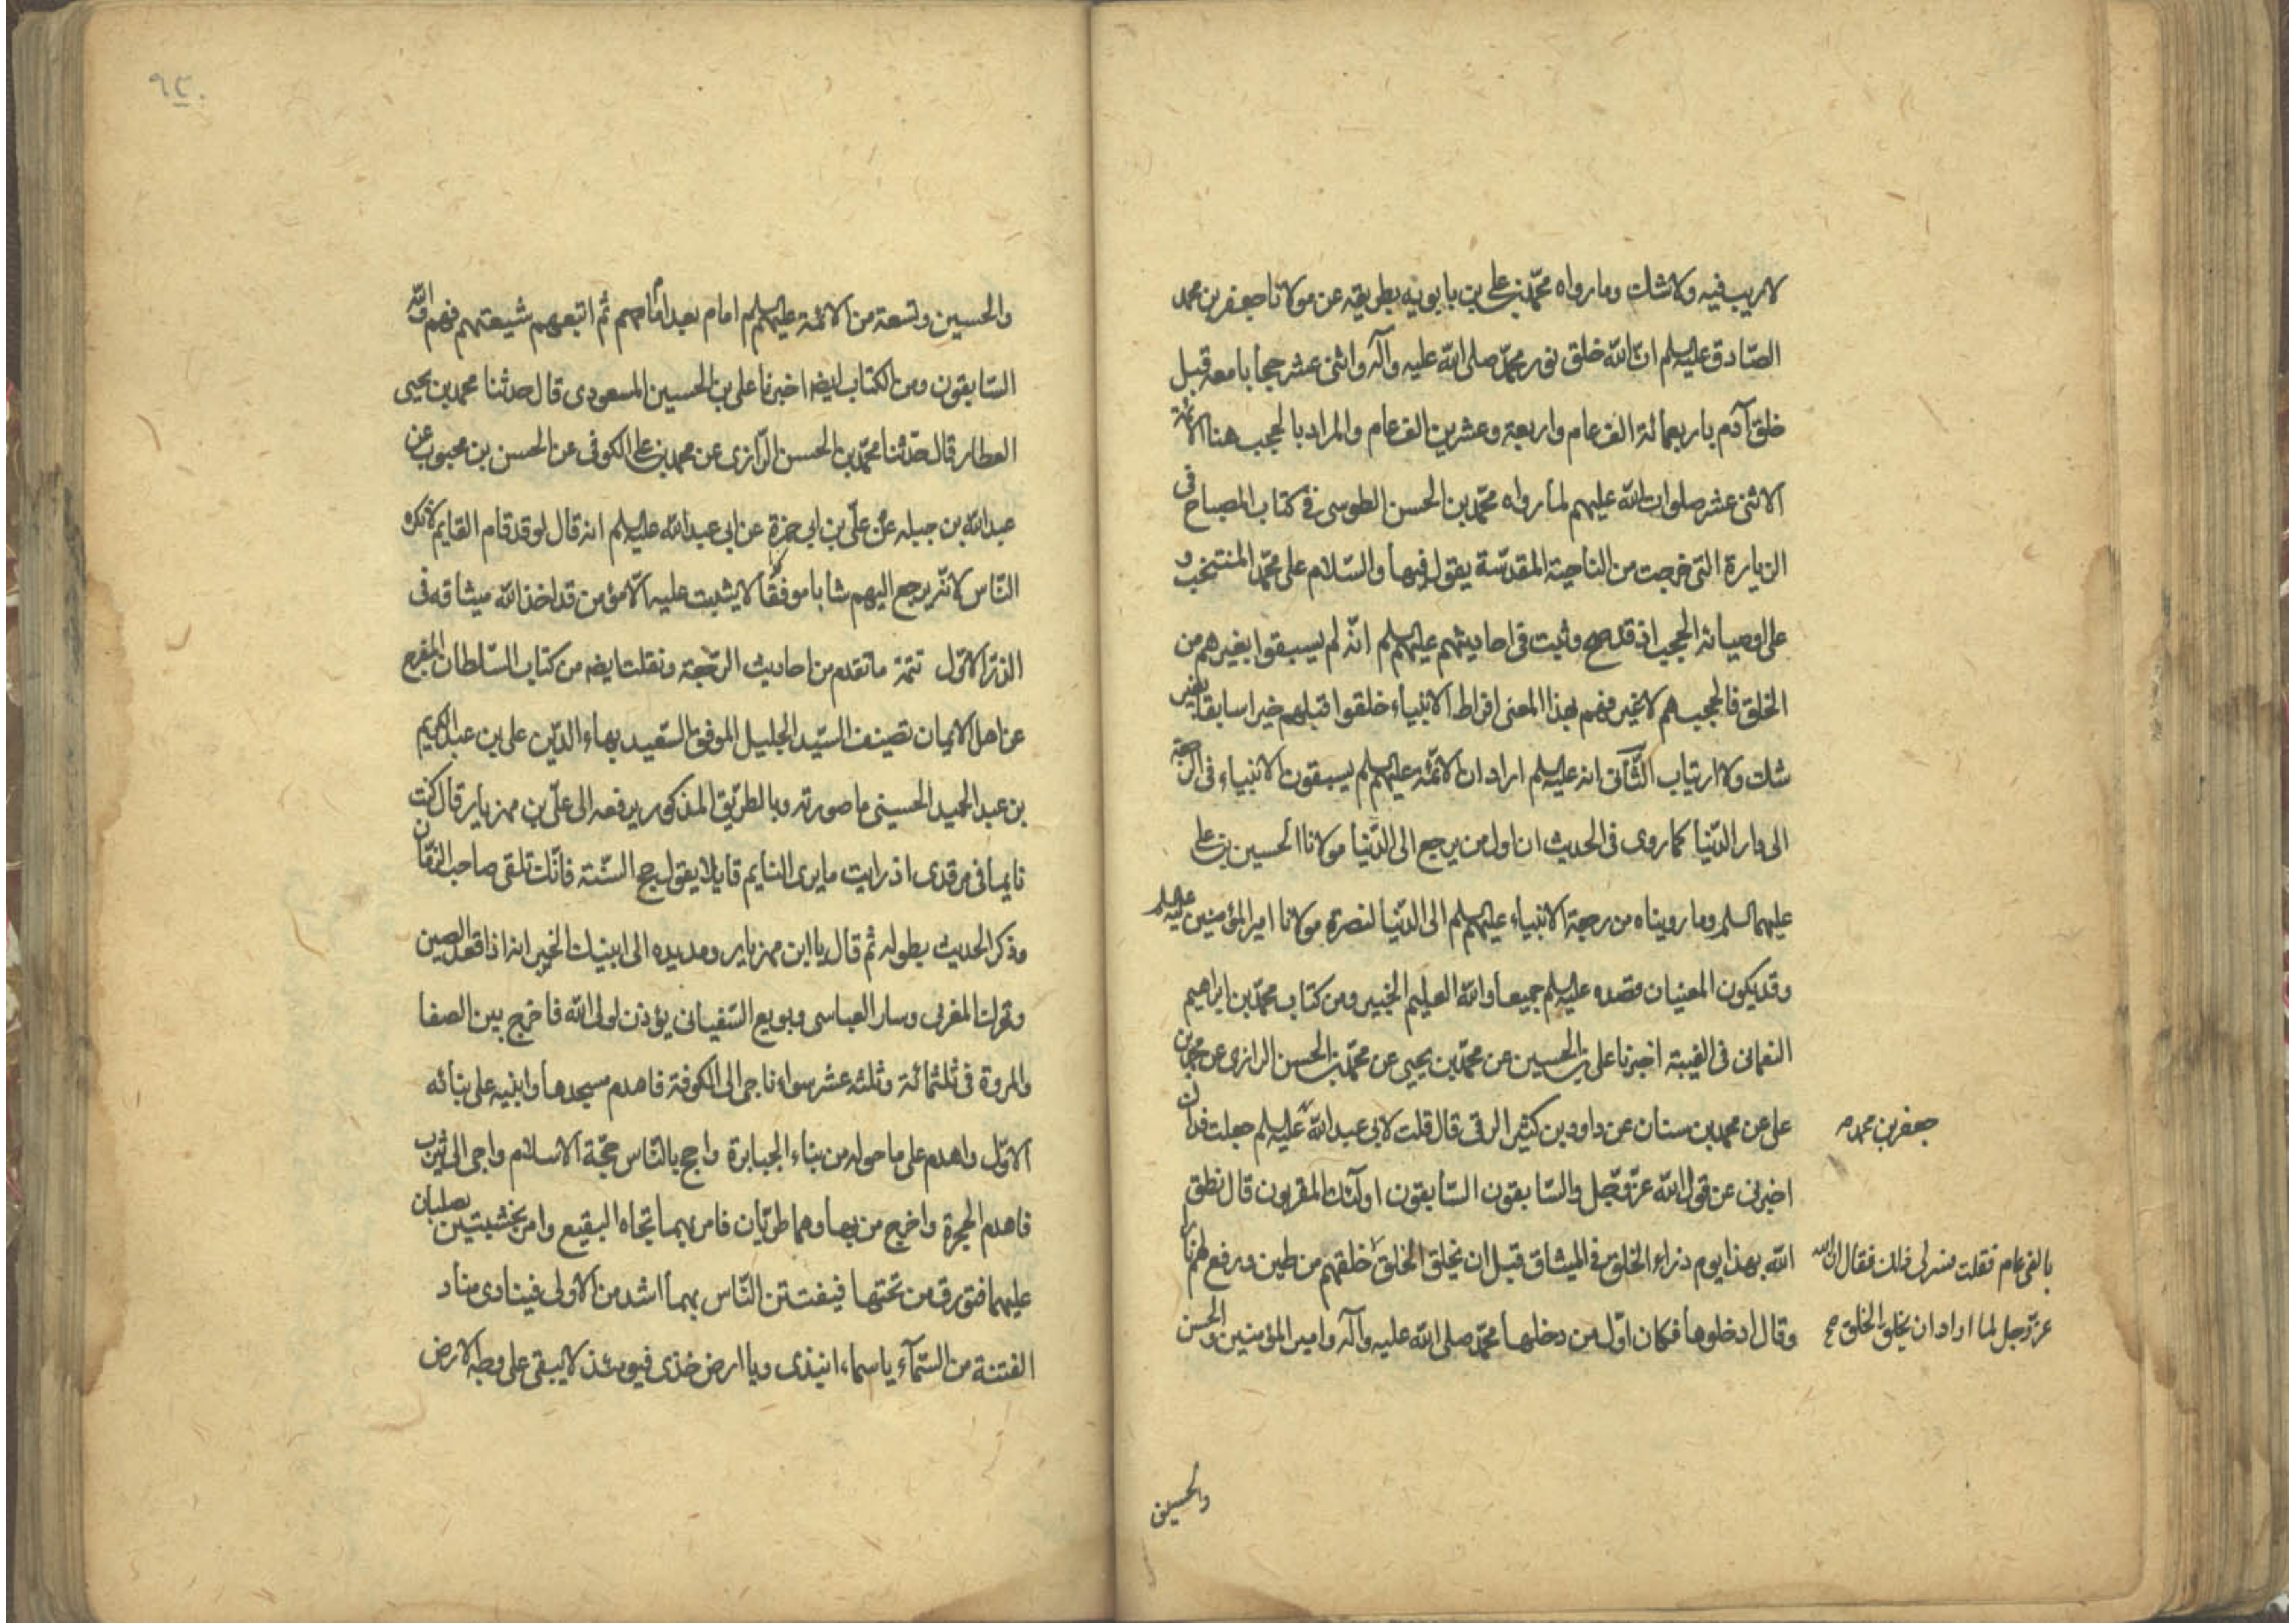 لاريب فيه ولاشك وما رواه محمّد بن علي بن بابويه بطريقه عن مولانا جعفر بن محمد
الصّادق عليه السلم انّ اللّه خلق نور محمّد صلى اللّه عليه وآله واثنى عشر حجابا معه قبل
خلق آدم باربعمائة الف عام واربعة وعشرين الف عام والمراد بالحجب هنا الائمة
الاثنى عشر صلوات اللّه عليهم لما رواه محمّد بن الحسن الطوسى فى كتاب المصباح فى
الزيارة التى خرجت من الناحية المقدّسة يقول فيها والسّلام على محمّد المنتجب و
على اوصيائه الحجب اذ قد صح وثبت فى احاديثهم عليهم السلم انّه لم يسبقوا بغيرهم من
الخلق فالحجب هم لاغير فهم بهذا المعنى افراط الانبياء خلقوا قبلهم خيرا سابقا بغير
شك ولا ارتياب الثّانى انه عليه السلم اراد ان الائمّة عليهم السلم يسبقون الانبياء فى الرجعة
الى دار الدّنيا كما روى فى الحديث ان اول من يرجع الى الدّنيا مولانا الحسين بن على
عليهما السلم وما رويناه من رجعة الانبياء عليهم السلم الى الدّنيا لنصرة مولانا امير المؤمنين عليه السلم
وقد يكون المعنيان قصده عليه السلم جميعا واللّه العليم الخبير ومن كتاب محمّد بن ابراهيم
النعمانى فى الغيبة اخبرنا على بن الحسين عن محمّد بن يحيى عن محمّد بن الحسن الرازى عن محمد بن
على عن محمد بن سنان عن داود بن كثير الرقى قال قلت لابى عبد اللّه عليه السلم جعلت فداك
جعفر بن محمد
اخبرنى عن قول اللّه عزّ وجّل والسّابقون السّابقون اولئك المقربون قال نطق
اللّه بهذا يوم ذراء الخلق فى الميثاق قبل ان يخلق الخلق خلقهم من طين ورفع لهم نارا
بالفى عام فقلت فسر لى ذلك فقال ان الله
وقال ادخلوها فكان اوّل من دخلها محمّد صلى اللّه عليه وآله وامير المؤمنين والحسن
عزّ وجل لما اراد ان يخلق الخلق صح
والحسين
والحسين وتسعة من الائمّة عليهم السلم امام بعد امام ثم اتبعهم شيعتهم فهم واللّه
السّابقون ومن الكتاب ايضا اخبرنا على بن الحسين المسعودى قال حدثنا محمد بن يحيى
العطار قال حدّثنا محمّد بن الحسن الرّازى عن محمد بن على الكوفى عن الحسن بن محبوب عن
عبد اللّه بن جبله عن علّى بن ابى حمزة عن ابى عبد اللّه عليه السلم انه قال لو قد قام القايم لانكره
النّاس لانّه يرجع اليهم شابا موفقا لا يثبت عليه الّا مؤمن قد اخذ اللّه ميثاقه فى
الذرّ الاوّل تتمّة ما تقدم من احاديث الرّجعة ونقلت ايضا من كتاب السّلطان المفرج
عن اهل الايمان تصنيف السيّد الجليل الموفق السّعيد بهاء الدّين على بن عبد الكريم
بن عبد الحميد الحسينى ما صورته وبالطريق المذكور يرفعه الى علّى بن مهزيار قال كنت
نايما فى مرقدى اذ رايت ما يرى النايم قايلا يقول حج السّنة فانّك تلقى صاحب الزّمان
وذكر الحديث بطوله ثم قال يا ابن مهزيار ومد يده الا انبئك الخبر انه اذا قعد الصين
وتحرك المغربى وسار العباسى وبويع السّفيانى يؤذن لولى اللّه فاخرج بين الصفا
والمروة فى ثلثمائة وثلثه عشر سواء فاجى الى الكوفة فاهدم مسجدها وابنيه على بنائه
الاوّل واهدم على ما حوله من بناء الجبابرة واحج بالنّاس حجّة الاسلام واجى الى يثرب
فاهدم الحجرة واخرج من بها وهما طريّان فامر بهما تجاه البقيع وامر بخشبتين يصلبان
عليهما فتورق من تحتها فيفتتن النّاس بهما اشد من الاولى فينادى مناد
الفتنة من السّمآء ياسماء انبذى ويا ارض خذى فيومئذ لايبقى على وجه الارض